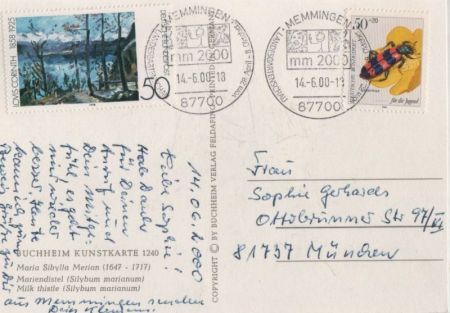 LOVIS CORINTH 1858-1925
50
MEMMINGEN
LANDESGARTENSCHAU
mm 2000
14.-6.00-18
87700
MEMMINGEN
LANDESGARTENSCHAU
mm 2000
14.-6.00-18
87700
50+20
für die Jugend
14.06.2000
Liebe Sophie!
Hab Dank
für Deinen
Anruf und
Dein Mitge-
fühl, es geht
mir wieder
besser. Heute
kann ich
Grüße zu Dir
aus Memmingen senden
Dein Klemens
BUCHHEIM KUNSTKARTE 1240
Maria Sibylla Merian (1647 - 1717)
Mariendistel (Silybum marianum)
Milk thistle (Silybum marianum)
COPYRIGHT © BY BUCHHEIM VERLAG FELDAFING PRINTED IN GERMANY
Frau
Sophie Gerhards
Ottobrunner Str 97/VI
81737 München